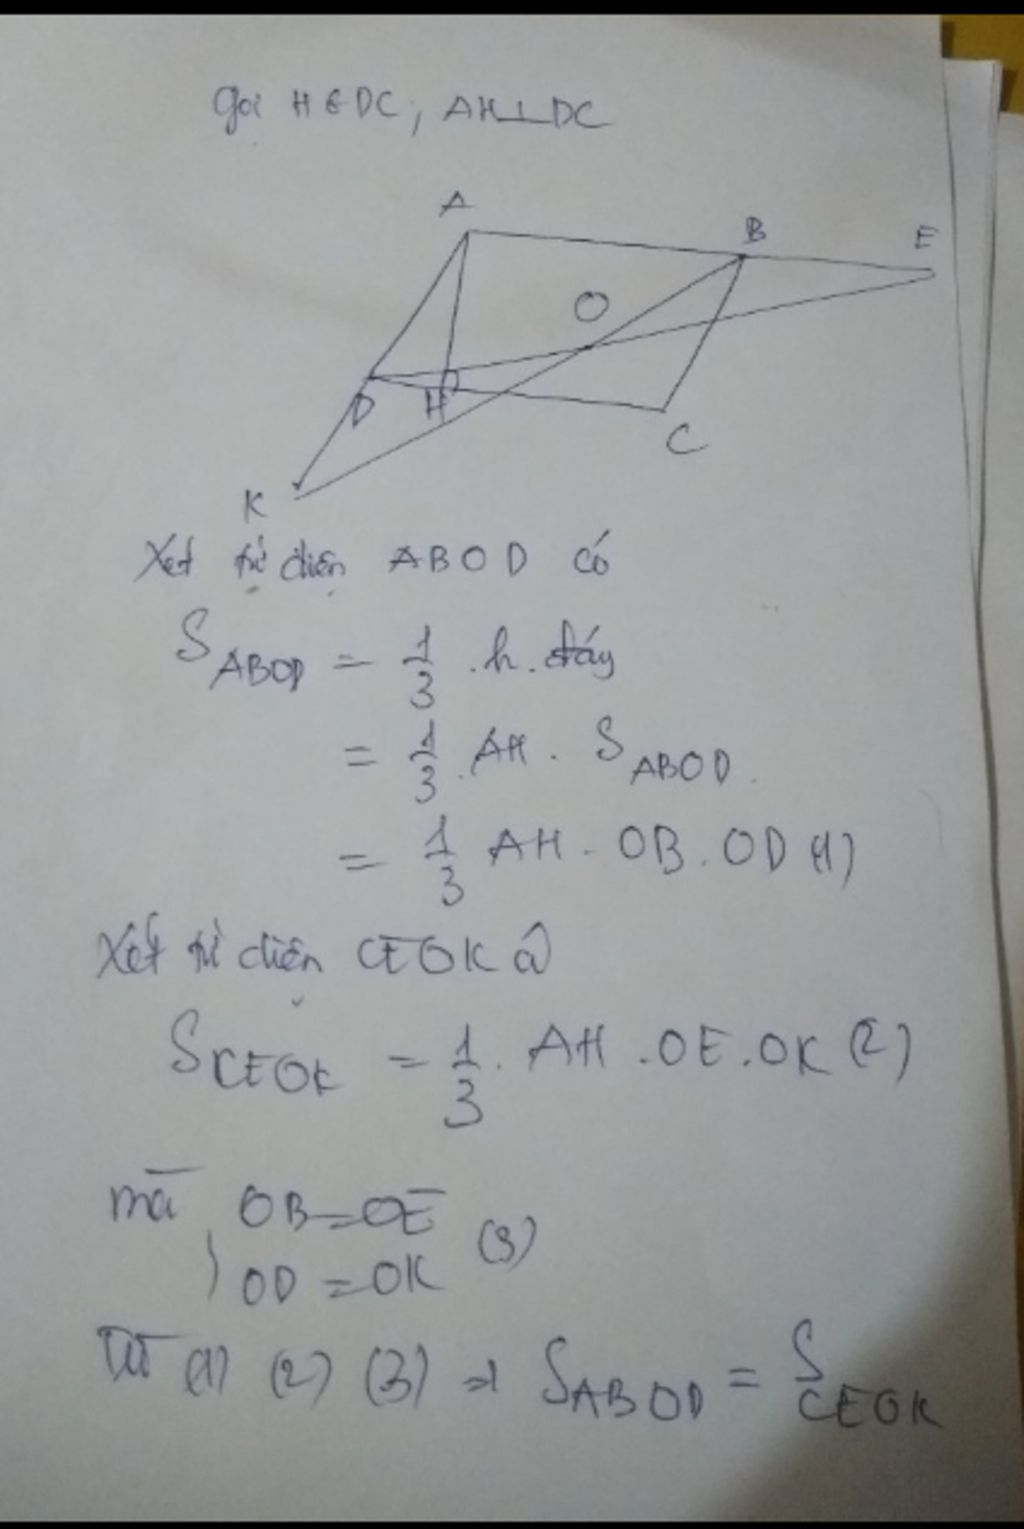 gọi H ∈ DC, AH ⊥ DC
A
B
E
O
D
H
C
K
Xét tứ diện ABOD có
S ABOD = 1/3 . h . đáy
= 1/3 . AH . S ABOD
= 1/3 AH . OB . OD (1)
Xét tứ diện CEOK có
S CEOK = 1/3 . AH . OE . OK (2)
mà OB = OE
OD = OK (3)
Từ (1) (2) (3) ⇒ S ABOD = S CEOK